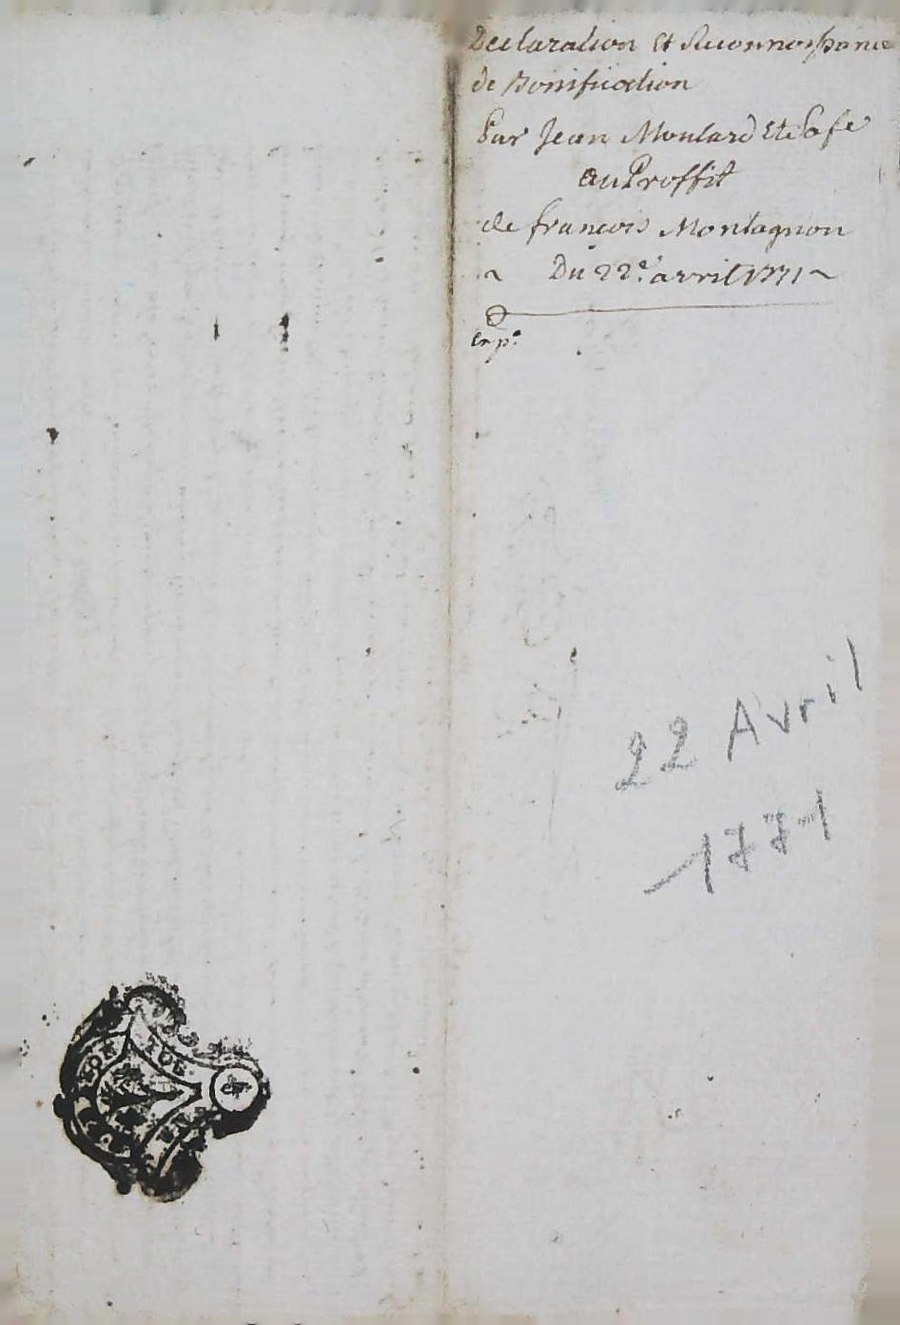 Declaration Et Reconnoissance
de Bonification
Par Jean Moulard Et Safe
au Proffit
de francois Montagnon
Du 22e. avril 1771
Exp.e
22 Avril
1771